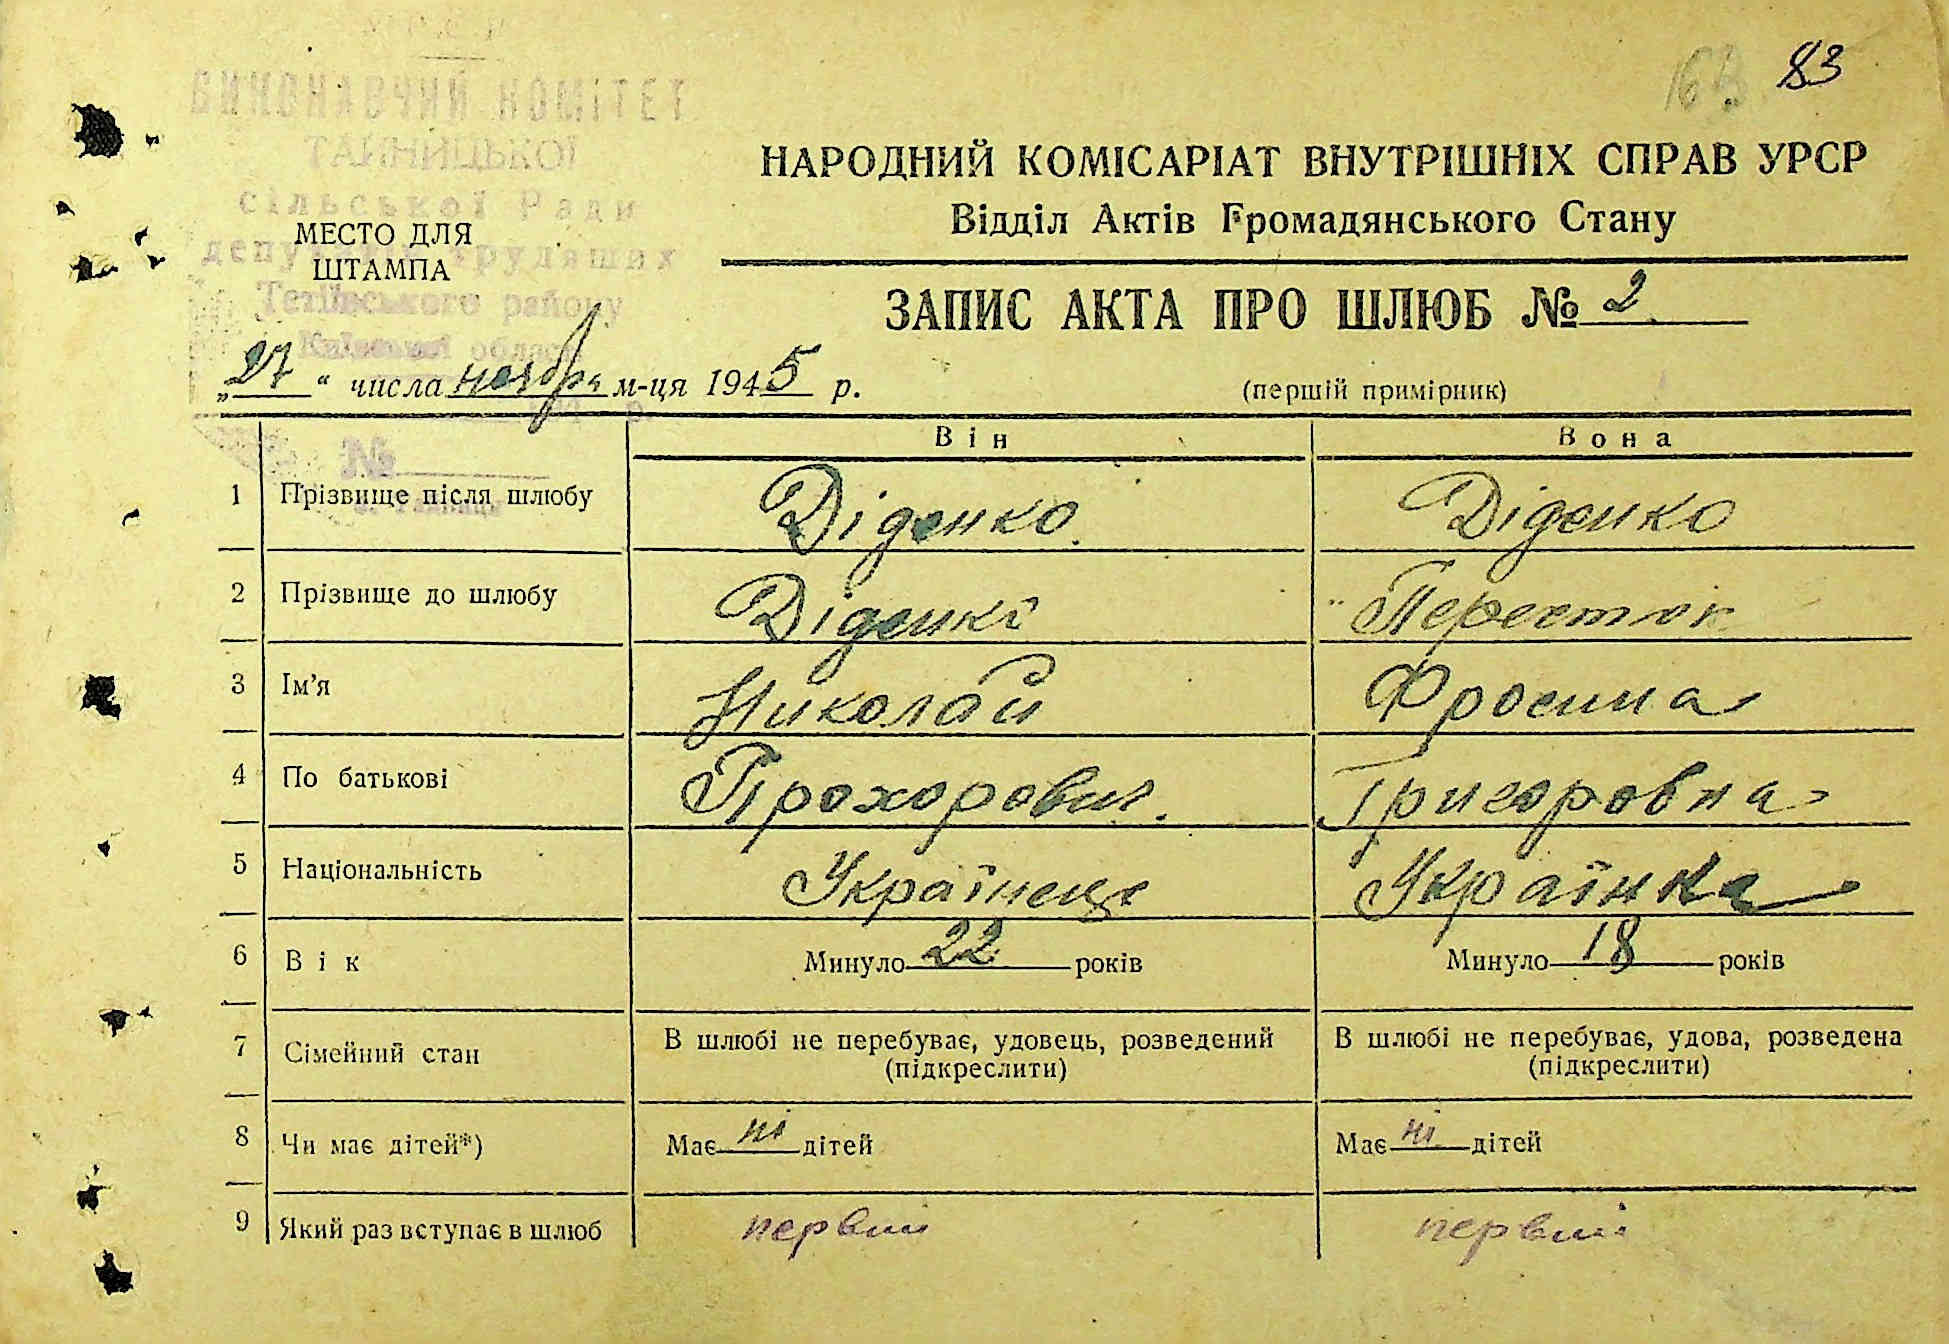 83
ВИКОНАВЧИЙ КОМІТЕТ
сільської Ради
МЕСТО ДЛЯ
ШТАМПА
Тетіївського району
Київської області
НАРОДНИЙ КОМІСАРІАТ ВНУТРІШНІХ СПРАВ УРСР
Відділ Актів Громадянського Стану
ЗАПИС АКТА ПРО ШЛЮБ № 2
„27“ числа ноября м-ця 1945 р.
(першій примірник)
№
Він Вона
1 Прізвище після шлюбу Діденко Діденко
2 Прізвище до шлюбу Діденко
3 Ім’я Николай Фросина
4 По батькові Прохорович Григоровна
5 Національність Українець Українка
6 Вік Минуло 22 років Минуло 18 років
7 Сімейний стан В шлюбі не перебуває, удовець, розведений (підкреслити) В шлюбі не перебуває, удова, розведена (підкреслити)
8 Чи має дітей*) Має ні дітей Має ні дітей
9 Який раз вступає в шлюб первий первий